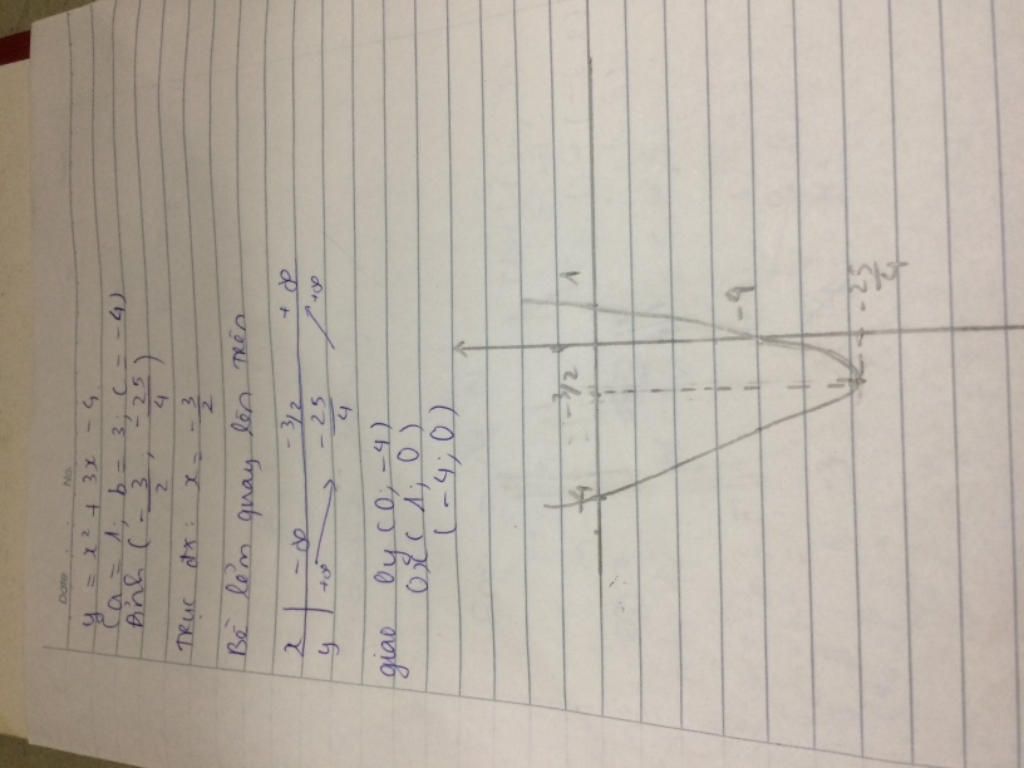 Date No.
y = x² + 3x - 4
(a = 1, b = 3, c = -4)
Đỉnh (-3/2, -25/4)
Trục đx: x = -3/2
Bề lõm quay lên trên
x -∞ -3/2 +∞
y +∞ -25/4 +∞
giao Oy (0; -4)
Ox (1; 0)
(-4; 0)
-4 -3/2 1
-4
-25/4